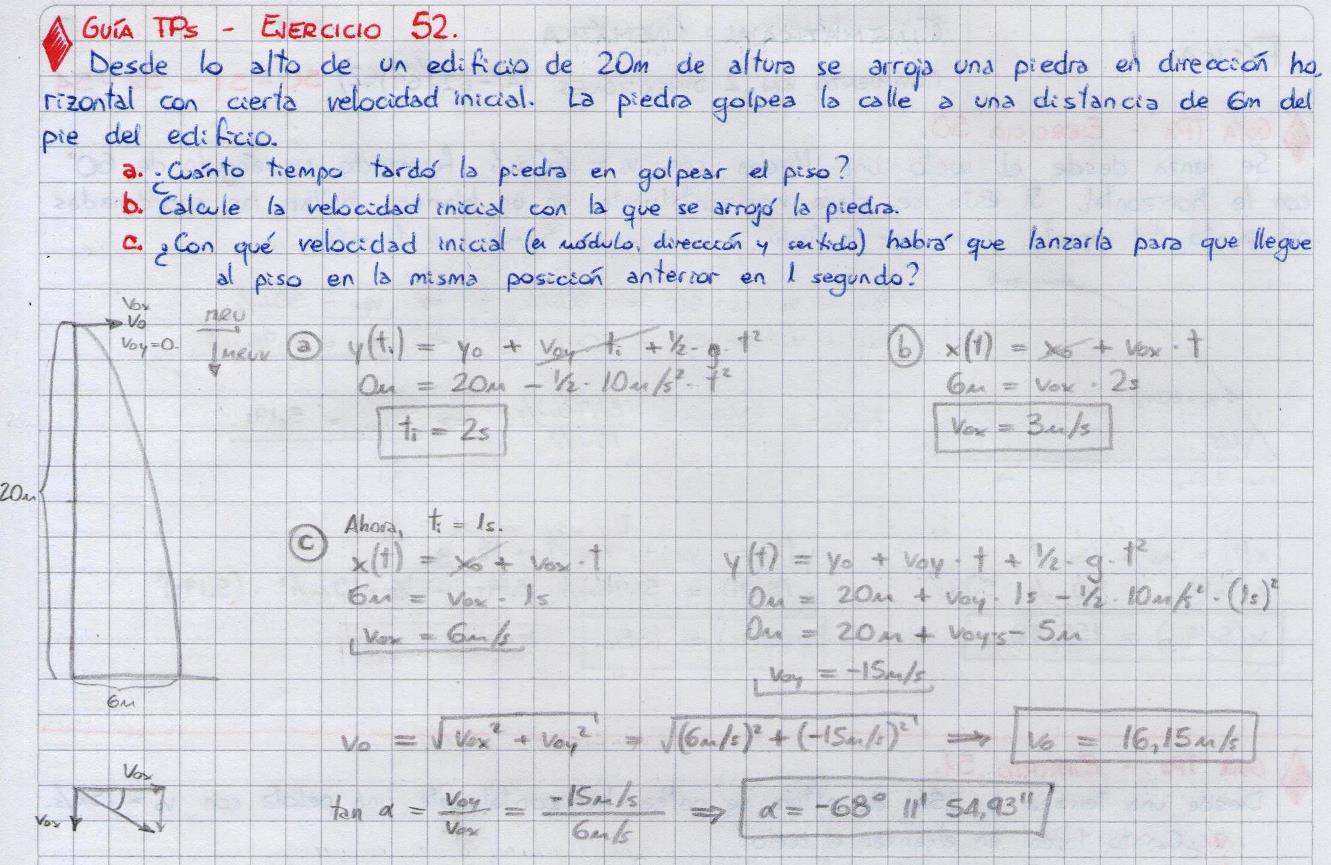 GUÍA TPs - EJERCICIO 52.
Desde lo alto de un edificio de 20m de altura se arroja una piedra en dirección ho
rizontal con cierta velocidad inicial. La piedra golpea la calle a una distancia de 6m del
pie del edificio.
a. ¿Cuánto tiempo tardó la piedra en golpear el piso?
b. Calcule la velocidad inicial con la que se arrojó la piedra.
c. ¿Con qué velocidad inicial (en módulo, dirección y sentido) habrá que lanzarla para que llegue
al piso en la misma posición anterior en 1 segundo?
Vox
Vo
Voy=0
MRU
MRUV
20m
6m
a y(ti) = yo + voy ti + 1/2 · g · t²
0m = 20m - 1/2 · 10m/s² · t²
ti = 2s
b x(t) = xo + vox · t
6m = vox · 2s
vox = 3m/s
c Ahora, ti = 1s.
x(t) = xo + vox · t
6m = vox · 1s
vox = 6m/s
y(t) = yo + voy · t + 1/2 · g · t²
0m = 20m + voy · 1s - 1/2 · 10m/s² · (1s)²
0m = 20m + voy·s - 5m
voy = -15m/s
vo = √(vox² + voy²) = √((6m/s)² + (-15m/s)²) ⇒ vo = 16,15m/s
Vox
Vox
tan α = voy/vox = -15m/s / 6m/s ⇒ α = -68° 11' 54,93"